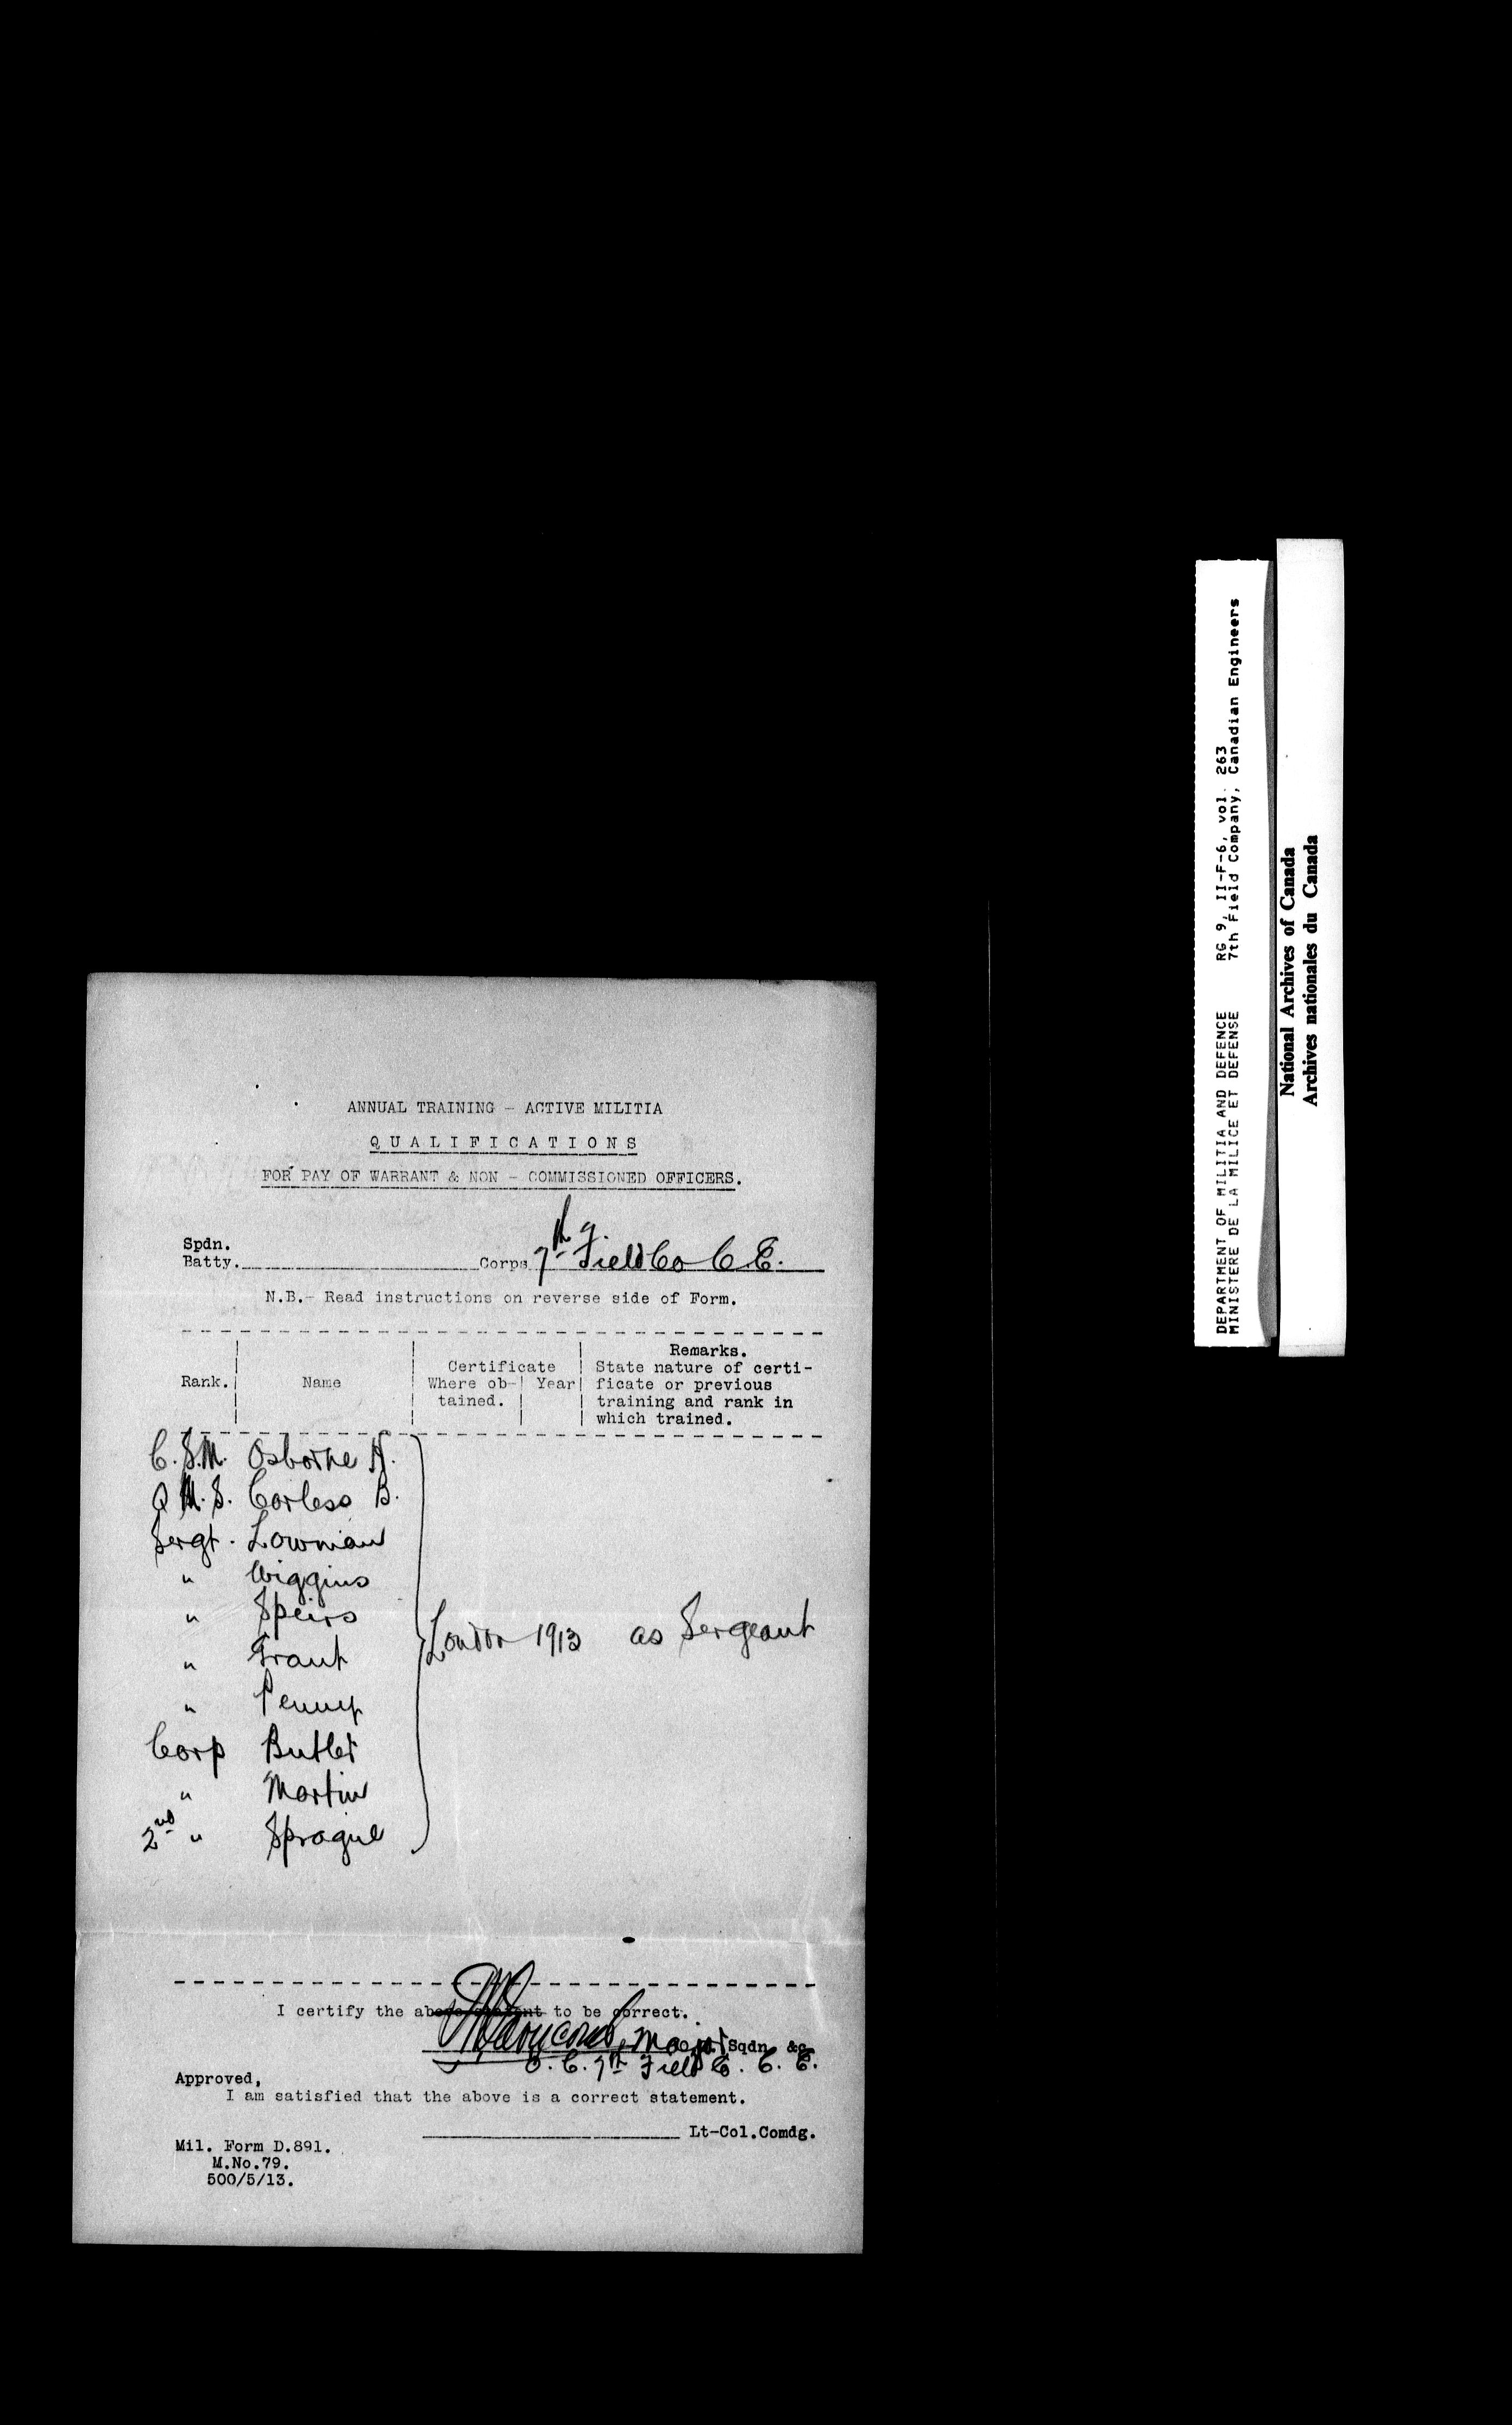 ANNUAL TRAINING - ACTIVE MILITIA
QUALIFICATIONS
FOR PAY OF WARRANT & NON - COMMISSIONED OFFICERS.
Spdn.
Batty. Corps 7th Field Co C E.
N.B.- Read instructions on reverse side of Form.
Rank. Name Certificate Where ob- tained. Year Remarks. State nature of certi- ficate or previous training and rank in which trained.
C.S.M. Osborne H.
Q.M.S. Corless B.
Sergt. Lowman
" Wiggins
" Speirs
" Grant
" Penny
Corp Butler
" Martin
2nd " Sprague
London 1913 as Sergeant
I certify the above to be correct.
Major Sqdn. &c.
O. C. 7th Field C. C. E.
Approved,
I am satisfied that the above is a correct statement.
Lt-Col.Comdg.
Mil. Form D.891.
M.No.79.
500/5/13.
DEPARTMENT OF MILITIA AND DEFENCE RG 9, II-F-6, vol. 263
MINISTERE DE LA MILICE ET DEFENSE 7th Field Company, Canadian Engineers
National Archives of Canada
Archives nationales du Canada